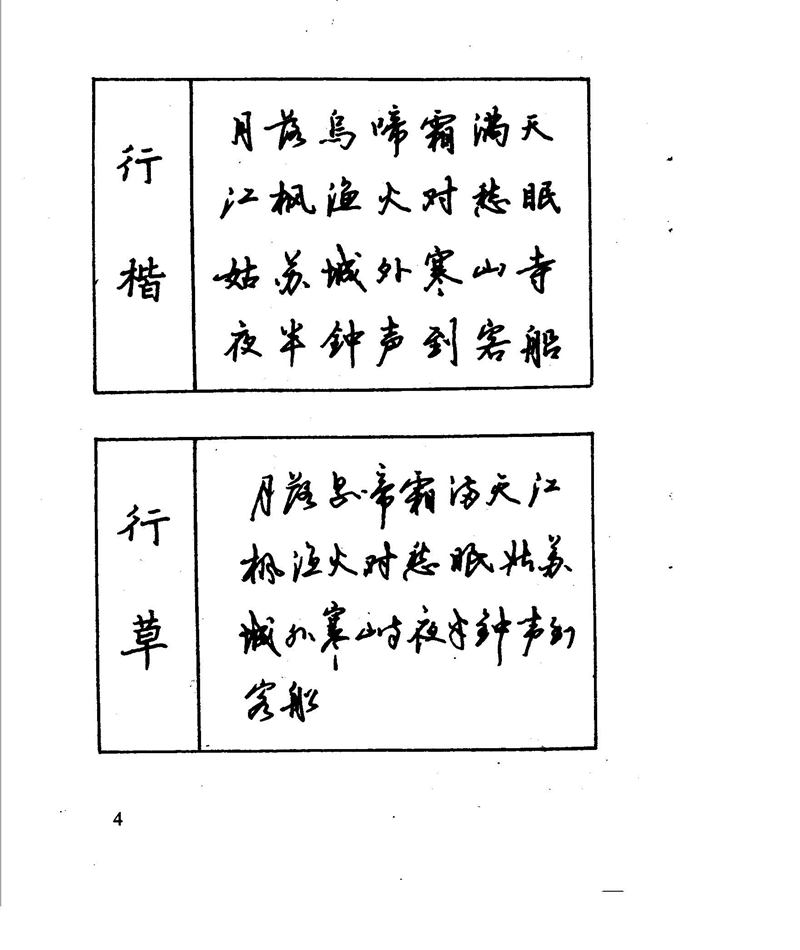 行楷
月落烏啼霜满天
江枫渔火对愁眠
姑苏城外寒山寺
夜半钟声到客船
行草
月落烏啼霜满天江
枫渔火对愁眠姑苏
城外寒山寺夜半钟声到
客船
4